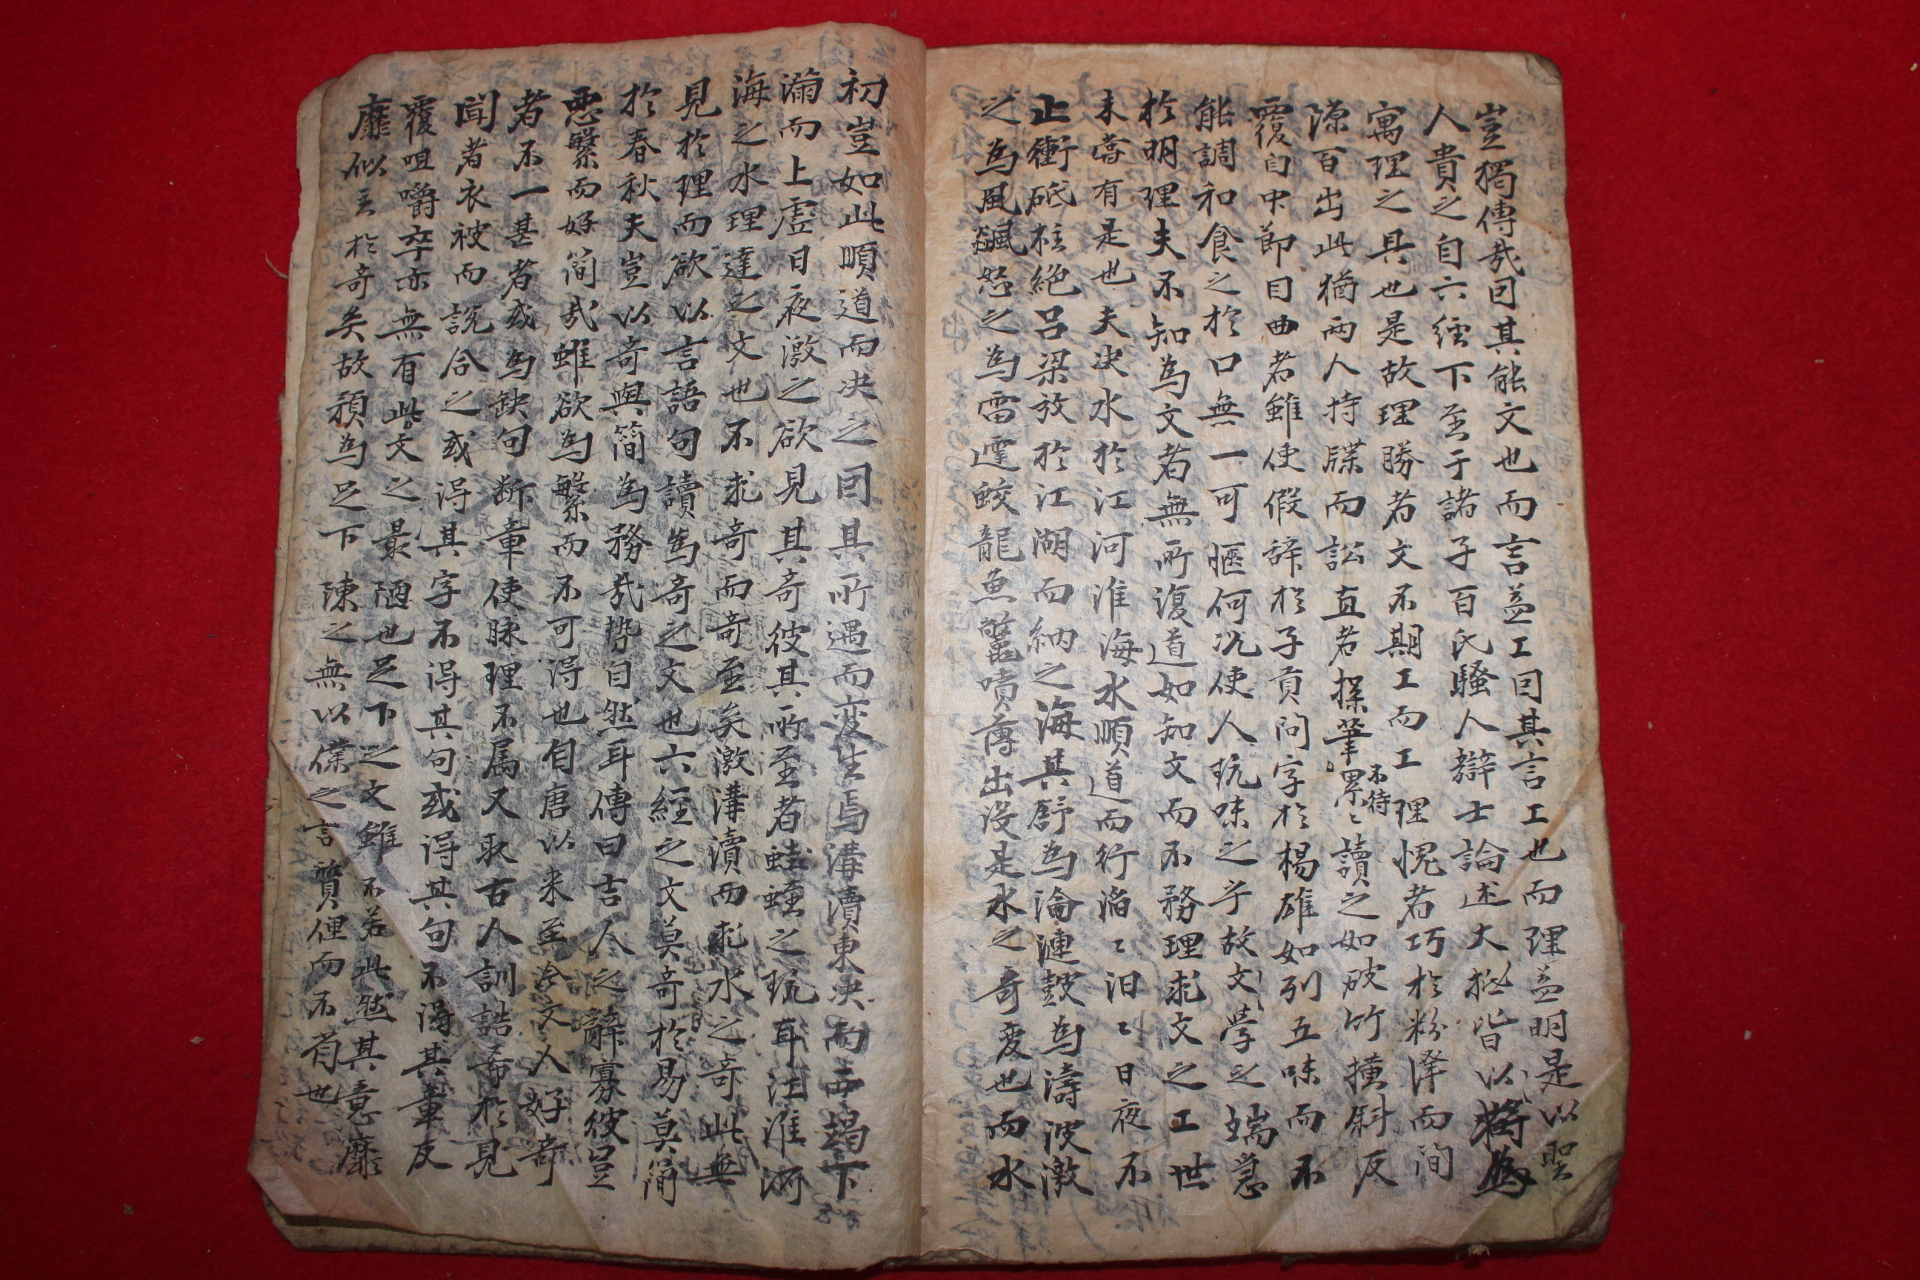 豈獨傳哉曰其能文也而言益工曰其言工也而理益明是以聖
人貴之自六經下至于諸子百氏騷人辯士論述大抵皆以將為
寓理之具也是故理勝者文不期工而工理愧者巧於粉澤而間
源百出此猶兩人持牒而訟直者操筆不待累〻讀之如破竹橫斜反
覆自中節目曲者雖使假辞於子貢問字於楊雄如列五味而不
能調和食之於口無一可愜何况使人玩味之乎故文學之端急
於明理夫不知為文者無所復道如知文而不務理求文之工世
未嘗有是也夫决水於江河淮海水順道而行滔〻汩〻日夜不
止衝砥柱絕呂梁放於江湖而納之海其舒為淪漣鼓為濤波激
之為風飆怒之為雷霆蛟龍魚黿噴薄出没是水之奇变也而水
初豈如此順道而决之曰其所遇而变生焉溝瀆東决而西竭下
滿而上虛日夜激之欲見其奇彼其所至者蛙蛭之玩耳江淮河
海之水理達之文也不求奇而奇至矣激溝瀆而求水之奇此無
見於理而欲以言語句讀為奇之文也六經之文莫奇於易莫簡
於春秋夫豈以奇與簡為務哉势自然耳傳曰吉人之辭寡彼豈
惡繁而好简哉雖欲為繁而不可得也自唐以来至今文人好奇
者不一甚者或為缺句断章使脉理不属又取古人訓誥希於見
聞者衣被而說合之或得其字不得其句或得其句不得其章反
覆咀嚼卒亦無有此文之最陋也足下之文雖不若此然其意靡
靡似主於奇矣故預為足下陳之無以僕之言質俚而不省也